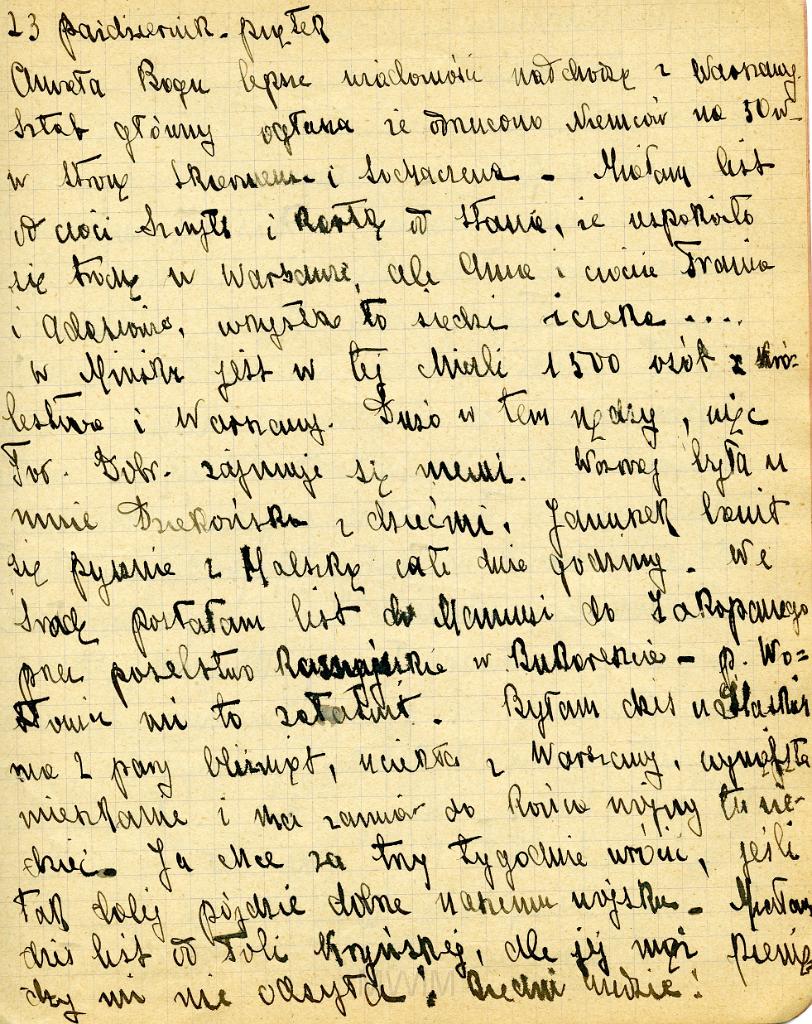 23 październik - piątek
Chwała Bogu lepsze wiadomości nadchodzą z Warszawy.
Sztab główny ogłasza że odrzucono Niemców na 50 w-
w stronę Skierniewic i Sochaczewa - Miałam list
od cioci i kartę od Stasia, że uspokoiło
się trochę w Warszawie, ale Anna i ciocia Frania
i Adasiowie, wszystko to siedzi i czeka ....
w Mińsku jest w tej chwili 1500 osób z Kró-
lestwa i Warszawy. Dużo w tem nędzy, więc
Tow. Dobr. zajmuje się niemi. Wczoraj była u
mnie Dziekońska z dziećmi. Januszek bawił
się pysznie z Halszką całe dwie godziny. We
środę posłałam list do Mamusi do Zakopanego
przez poselstwo w Bukareszcie - p. Wo=
mi to załatwił. Byłam dziś u
ma 2 pary bliźniąt, uciekła z Warszawy, wynajęła
mieszkanie i ma zamiar do końca wojny tu sie-
dzieć. Ja chcę za trzy tygodnie wrócić, jeśli
tak dalej pójdzie dobrze naszemu wojsku - Miałam
dziś list od Toli Kryńskiej, ale jej mąż pienię
dzy mi nie odsyła! Biedni ludzie!